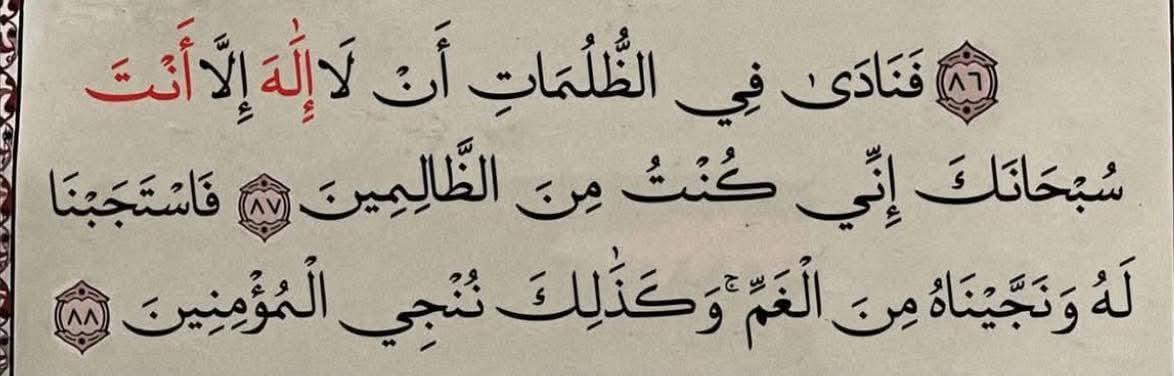 ﴿٨٦﴾ فَنَادَىٰ فِي الظُّلُمَاتِ أَنْ لَا إِلَٰهَ إِلَّا أَنْتَ
سُبْحَانَكَ إِنِّي كُنْتُ مِنَ الظَّالِمِينَ ﴿٨٧﴾ فَاسْتَجَبْنَا
لَهُ وَنَجَّيْنَاهُ مِنَ الْغَمِّ ۚ وَكَذَٰلِكَ نُنْجِي الْمُؤْمِنِينَ ﴿٨٨﴾